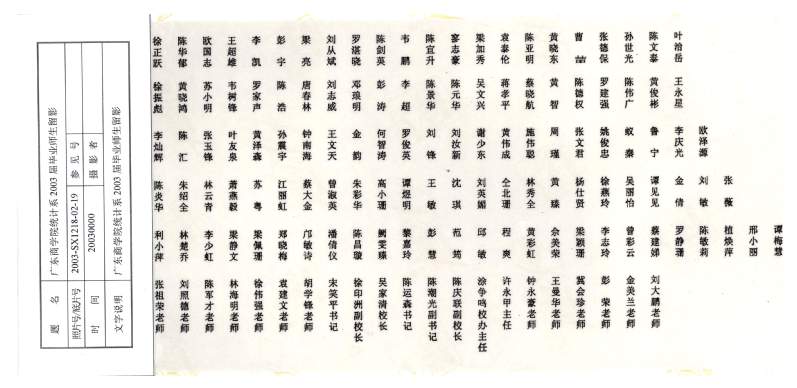 题名 广东商学院统计系2003届毕业师生留影
照片号/底片号 2003-SX1218-02-19 参见号
时间 20030000 摄影者
文字说明 广东商学院统计系2003届毕业师生留影
徐正跃 陈华郁 欧国志 王超雄 李凯 彭宇 梁亮 刘从斌 罗湛晓 陈剑英 韦鹏 陈宜升 寥志豪 梁加秀 袁泰伦 陈亚明 黄晓东 曹喆 张德保 孙世光 陈文泰 叶治岳
徐振彪 黄晓鸿 苏小明 韦树锋 罗家声 陈浩 唐春林 刘志威 邓琅明 彭涛 李超 陈景华 陈元华 吴文兴 蒋孝平 蔡晓航 黄智 陈德权 罗建强 陈伟广 黄俊彬 王永星
李灿辉 陈汇 张玉锋 叶友泉 黄泽森 孙震宇 钟南海 王文天 金韵 何智涛 罗俊英 刘锋 刘汝新 谢少东 黄伟成 施伟聪 周瑾 张文君 姚俊忠 蚁秦 鲁宁 李庆光 欧泽源
陈炎华 朱绍全 林云青 萧燕毅 苏粤 江丽虹 蔡大金 曾淑英 朱彩华 高小珊 谭煜明 王敏 沈琪 刘英媚 仝北珊 林秀全 黄臻 杨仕贤 徐燕玲 吴丽怡 谭见见 金倩 刘敏 张薇
利小萍 林楚乔 李少虹 梁静文 梁佩珊 郑晓梅 邝敏诗 潘倩仪 陈昌璇 阙雯臻 黎嘉玲 彭慧 范筠 邱敏 程爽 黄彩虹 余美荣 梁颖珊 李志玲 曾彩云 蔡建娣 罗静珊 陈敏莉 植焕萍 邢小丽 谭梅慧
张祖荣老师 刘照德老师 陈军才老师 林海明老师 徐伟强老师 袁建文老师 胡学锋老师 宋笑平书记 徐印洲副校长 吴家清校长 陈运森书记 陈潮光副书记 陈庆联副校长 涂争鸣校办主任 许永甲主任 钟永豪老师 王曼华老师 冀会珍老师 彭荣老师 金美兰老师 刘大鹏老师